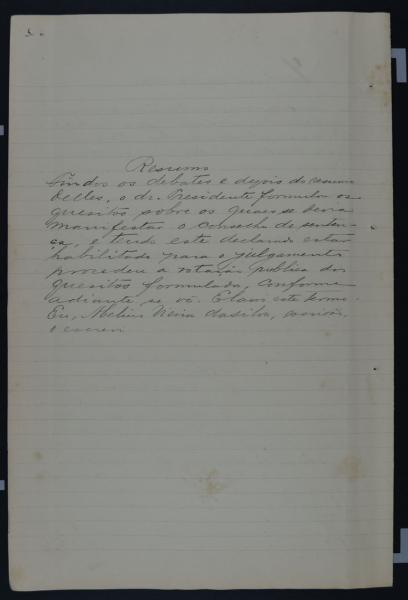 Resumo
Findos os debates e depois do resumo
delles, o dr. Presidente formulou os
quesitos sobre os quaes se devia
manifestar o conselho de senten-
ça, e tendo este declarado estar
habilitado para o julgamento
procedeu a votação publica dos
quesitos formulados, conforme
adiante se vê. E lavro este termo.
Eu, Vieira da Silva, escrivão,
o escrevi